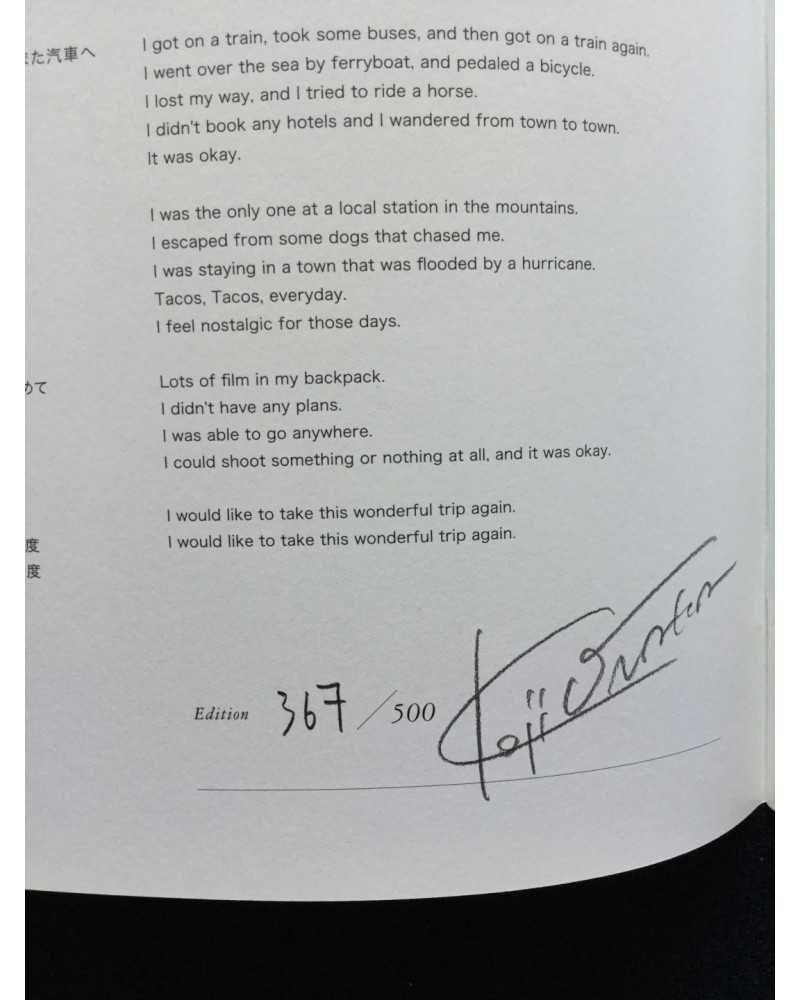 た汽車へ
I got on a train, took some buses, and then got on a train again.
I went over the sea by ferryboat, and pedaled a bicycle.
I lost my way, and I tried to ride a horse.
I didn't book any hotels and I wandered from town to town.
It was okay.
I was the only one at a local station in the mountains.
I escaped from some dogs that chased me.
I was staying in a town that was flooded by a hurricane.
Tacos, Tacos, everyday.
I feel nostalgic for those days.
めて
Lots of film in my backpack.
I didn't have any plans.
I was able to go anywhere.
I could shoot something or nothing at all, and it was okay.
I would like to take this wonderful trip again.
度
I would like to take this wonderful trip again.
度
Edition 367 / 500 Koji